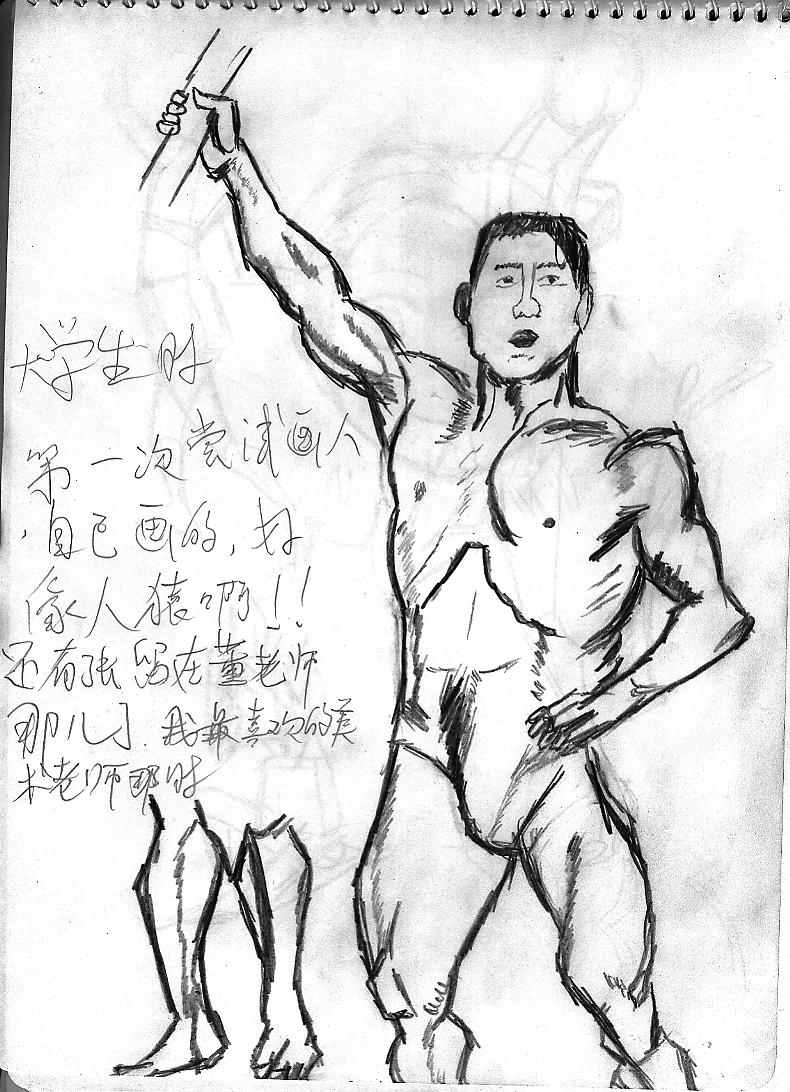 大学生时
第一次尝试画人
自己画的，好
像人猿啊！！
还有张留在董老师
那儿了．我最喜欢的美
术老师那时